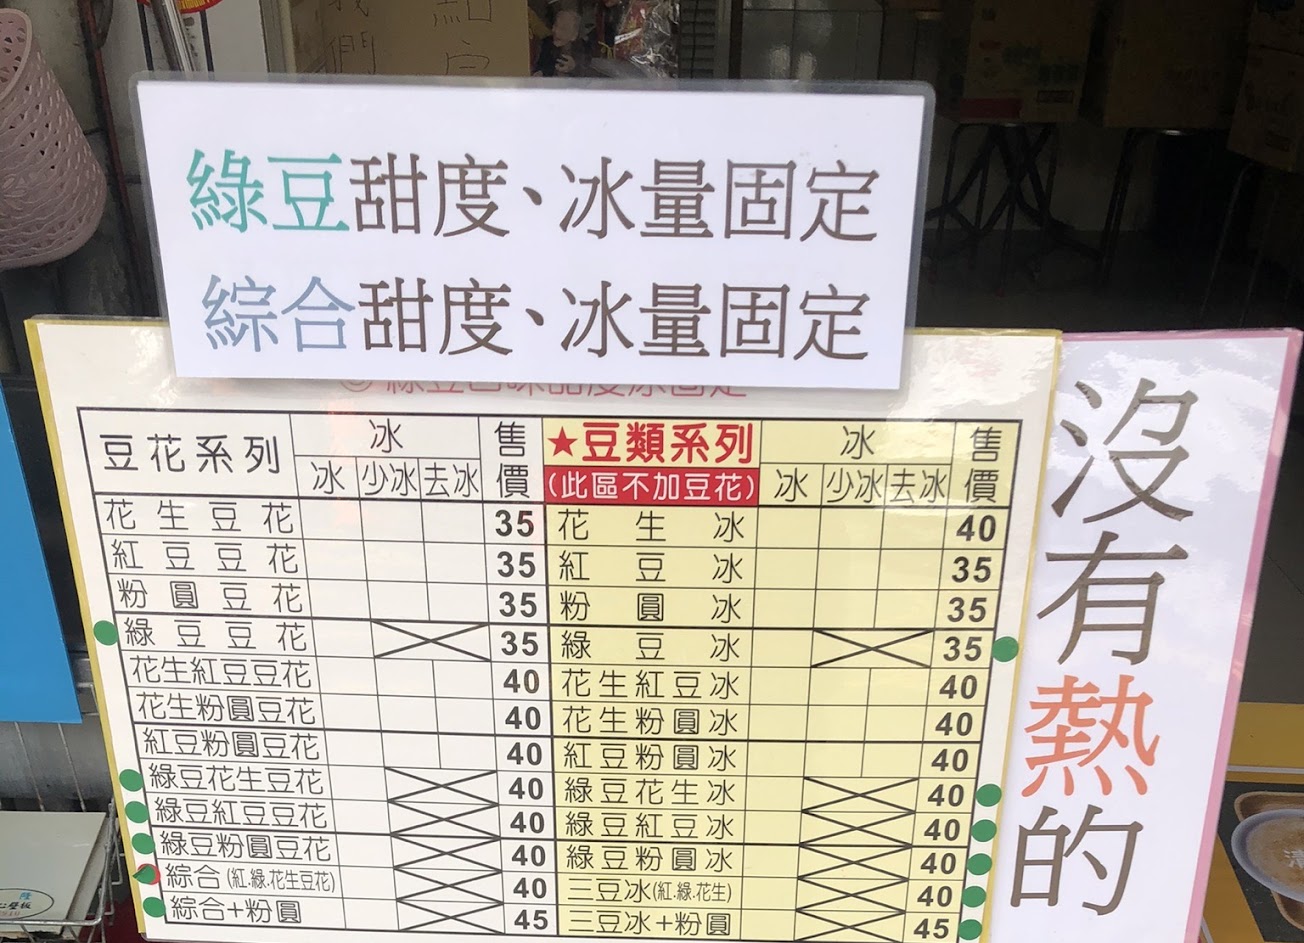 我們
點
綠豆甜度、冰量固定
綜合甜度、冰量固定
豆花系列 冰 售價 ★豆類系列 冰 售價
冰 少冰 去冰 (此區不加豆花) 冰 少冰 去冰
花生豆花 35 花生冰 40
紅豆豆花 35 紅豆冰 35
粉圓豆花 35 粉圓冰 35
綠豆豆花 35 綠豆冰 35
花生紅豆豆花 40 花生紅豆冰 40
花生粉圓豆花 40 花生粉圓冰 40
紅豆粉圓豆花 40 紅豆粉圓冰 40
綠豆花生豆花 40 綠豆花生冰 40
綠豆紅豆豆花 40 綠豆紅豆冰 40
綠豆粉圓豆花 40 綠豆粉圓冰 40
綜合(紅.綠.花生豆花) 40 三豆冰(紅.綠.花生) 40
綜合+粉圓 45 三豆冰+粉圓 45
沒有熱的